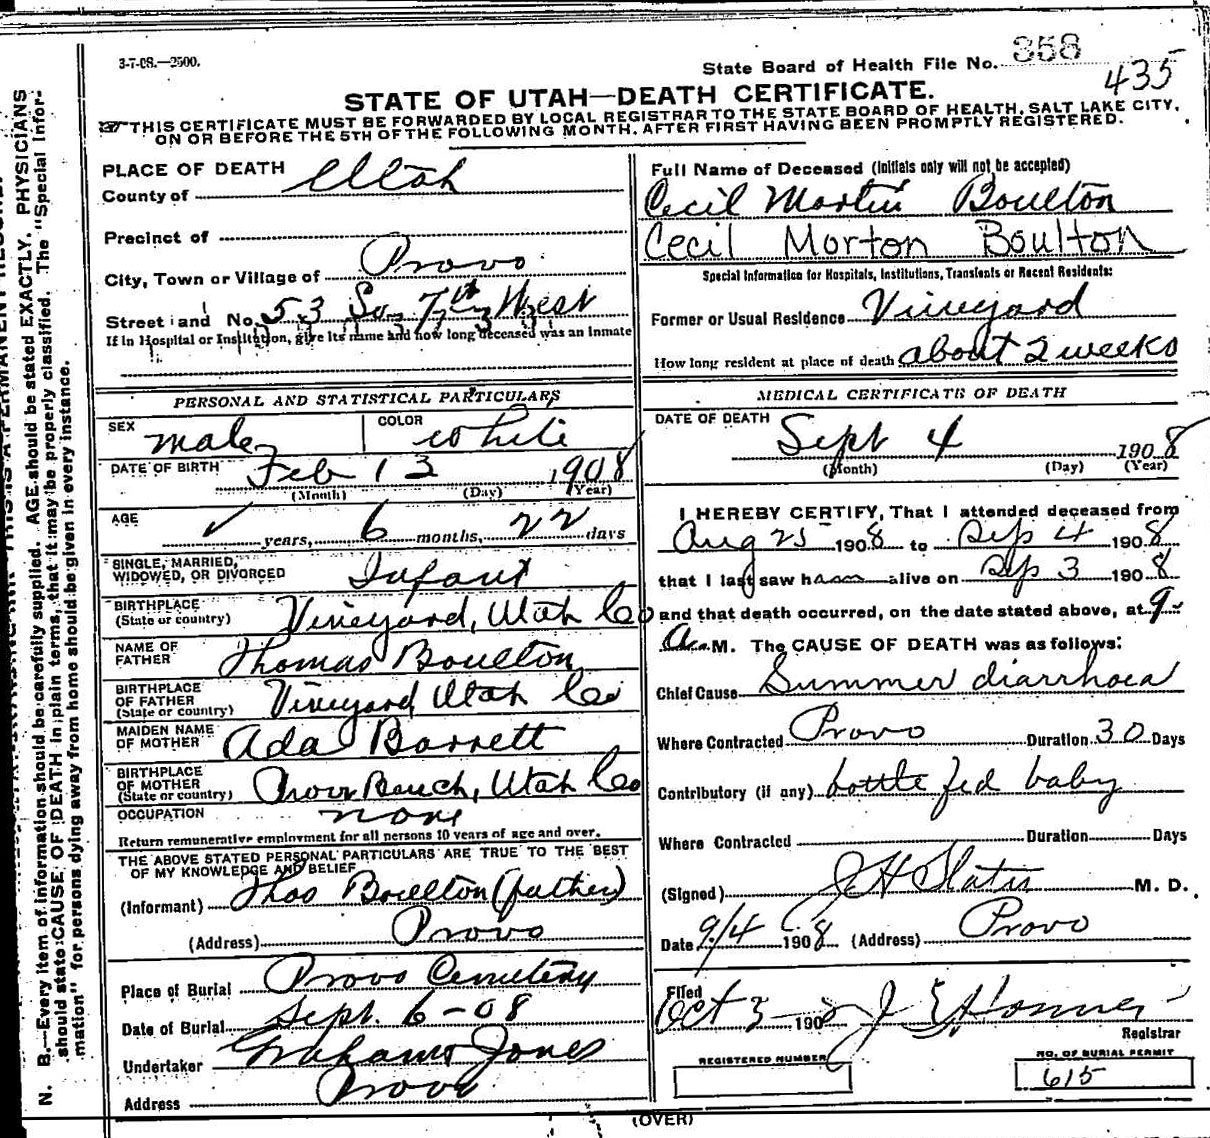 3-7-08.—2500.
State Board of Health File No. 358
435
STATE OF UTAH—DEATH CERTIFICATE.
THIS CERTIFICATE MUST BE FORWARDED BY LOCAL REGISTRAR TO THE STATE BOARD OF HEALTH, SALT LAKE CITY,
ON OR BEFORE THE 5TH OF THE FOLLOWING MONTH, AFTER FIRST HAVING BEEN PROMPTLY REGISTERED.
PLACE OF DEATH
County of Utah
Precinct of
City, Town or Village of Provo
Street and No. 53 So. 7th West
If in Hospital or Institution, give its name and how long deceased was an inmate
PERSONAL AND STATISTICAL PARTICULARS
SEX male COLOR white
DATE OF BIRTH Feb 13 1908
(Month) (Day) (Year)
AGE years, 6 months, 22 days
SINGLE, MARRIED,
WIDOWED, OR DIVORCED Infant
BIRTHPLACE
(State or country) Vineyard, Utah Co
NAME OF
FATHER Thomas Boulton
BIRTHPLACE
OF FATHER
(State or country) Vineyard Utah Co
MAIDEN NAME
OF MOTHER Ada Barrett
BIRTHPLACE
OF MOTHER
(State or country) Provo Bench, Utah Co
OCCUPATION none
Return remunerative employment for all persons 10 years of age and over.
THE ABOVE STATED PERSONAL PARTICULARS ARE TRUE TO THE BEST
OF MY KNOWLEDGE AND BELIEF
(Informant) Thos Boulton (father)
(Address) Provo
Place of Burial Provo Cemetery
Date of Burial Sept. 6-08
Undertaker Graham Jones
Address Provo
Full Name of Deceased (Initials only will not be accepted)
Cecil Martin Boulton
Cecil Morton Boulton
Special Information for Hospitals, Institutions, Transients or Recent Residents:
Former or Usual Residence Vineyard
How long resident at place of death about 2 weeks
MEDICAL CERTIFICATE OF DEATH
DATE OF DEATH Sept 4 1908
(Month) (Day) (Year)
I HEREBY CERTIFY, That I attended deceased from
Aug 25 1908 to Sep 4 1908
that I last saw h alive on Sep 3 1908
and that death occurred, on the date stated above, at 9
a. M. The CAUSE OF DEATH was as follows:
Chief Cause Summer diarrhoea
Where Contracted Provo Duration 30 Days
Contributory (if any) bottle fed baby
Where Contracted Duration Days
(Signed) J H Slater M. D.
Date 9/4 1908 (Address) Provo
Filed
Oct 3 1908 J
Registrar
REGISTERED NUMBER
NO. OF BURIAL PERMIT
615
(OVER)
N. B.—Every item of information should be carefully supplied. AGE should be stated EXACTLY. PHYSICIANS
should state CAUSE OF DEATH in plain terms, that it may be properly classified. The "Special Infor-
mation" for persons dying away from home should be given in every instance.